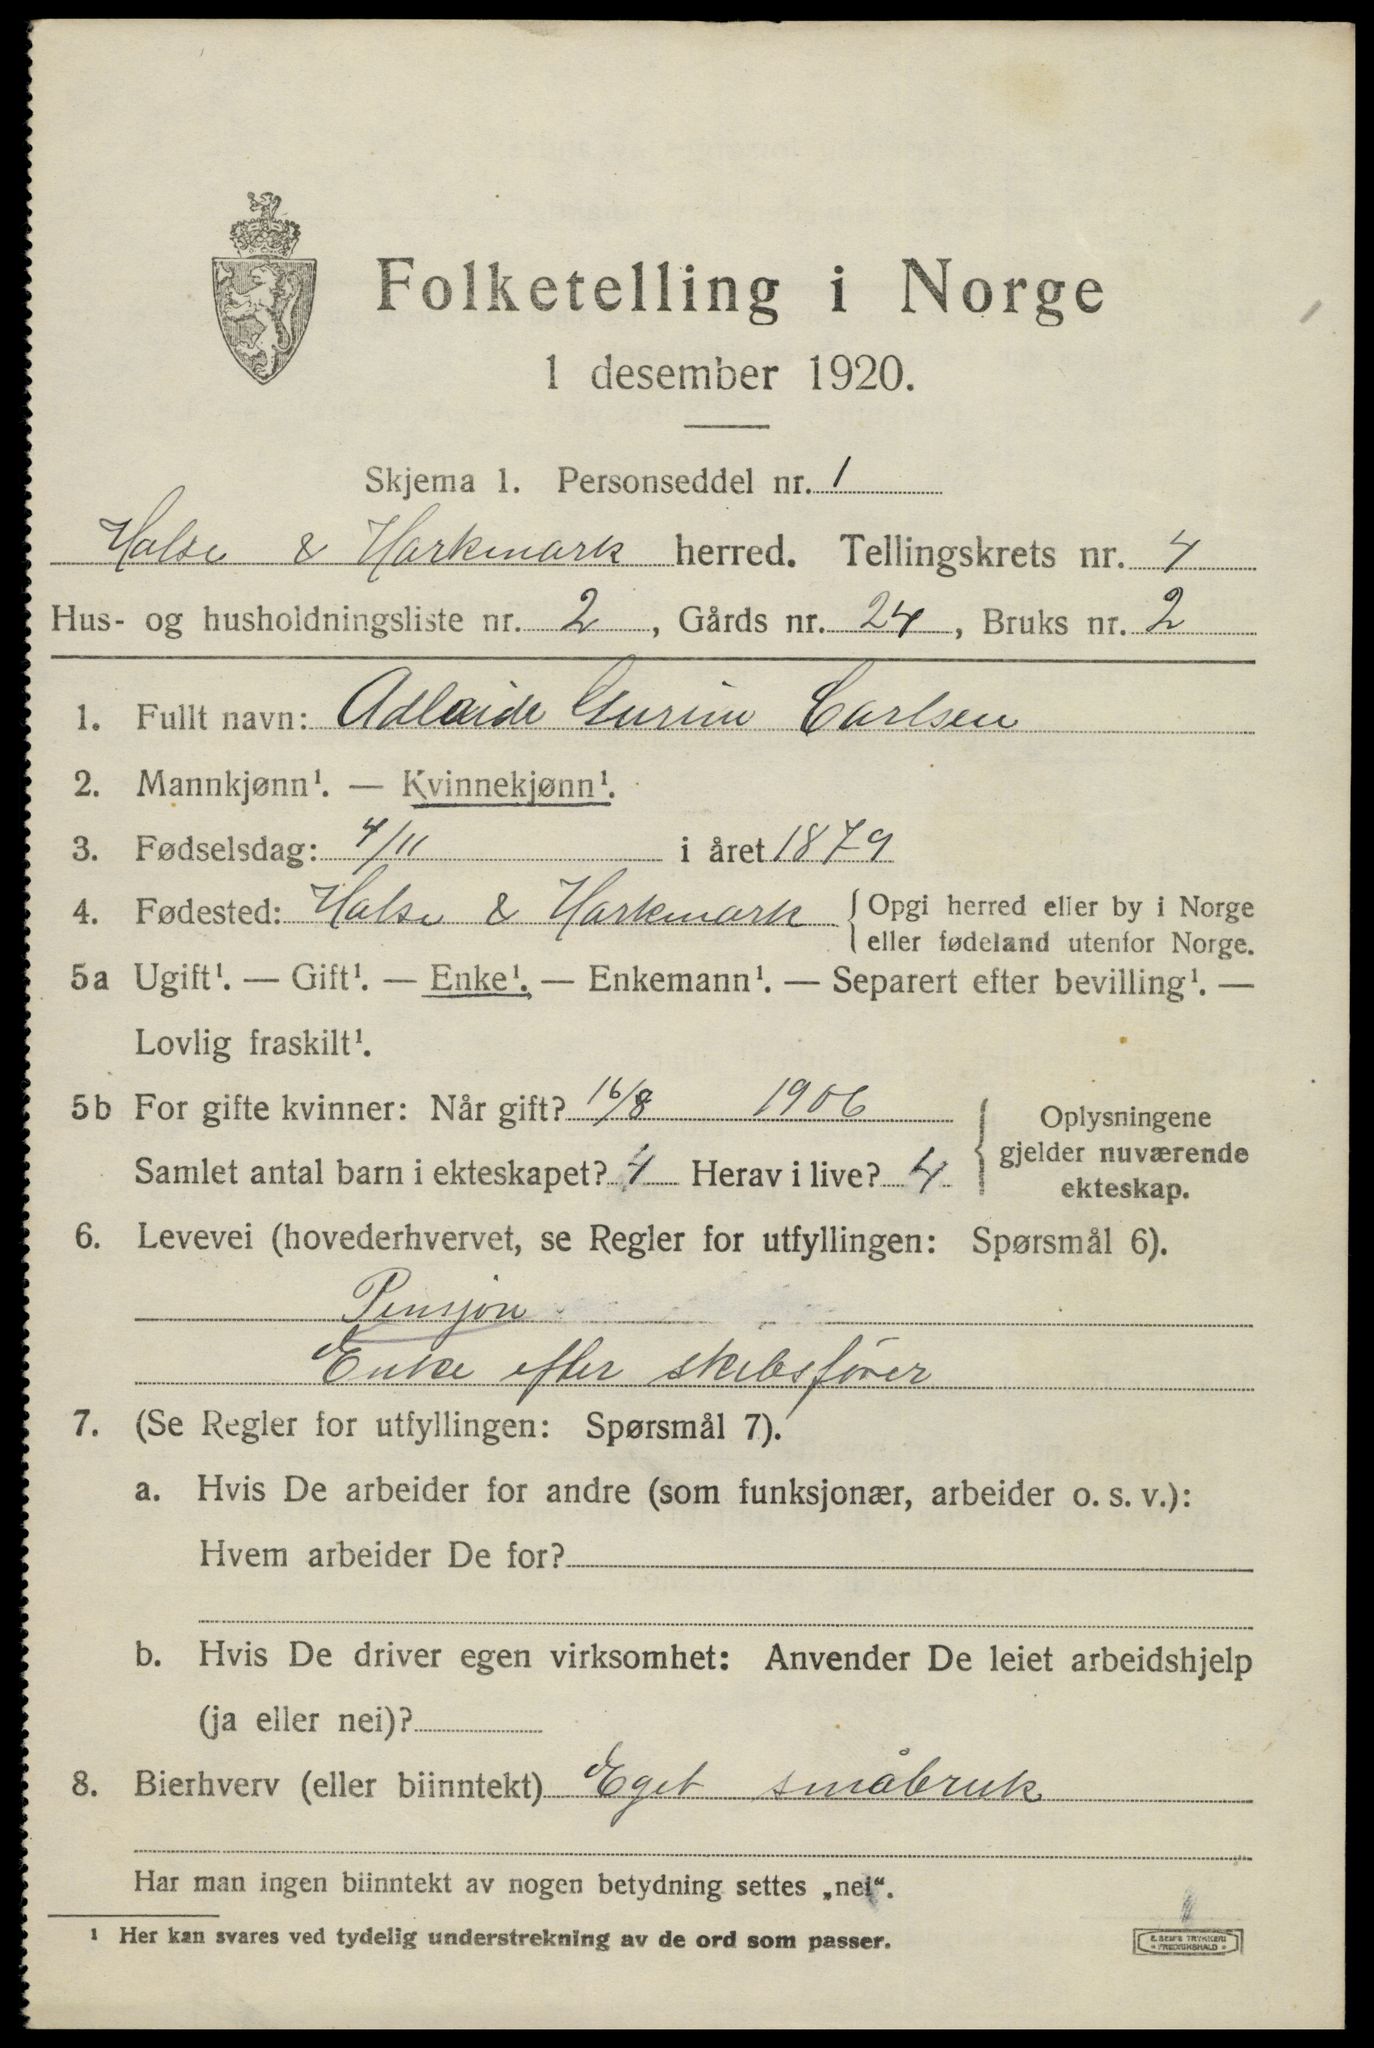 Folketelling i Norge
1 desember 1920.
Skjema 1. Personseddel nr. 1
Halse & Harkmark herred. Tellingskrets nr. 4
Hus- og husholdningsliste nr. 2, Gårds nr. 24, Bruks nr. 2
1. Fullt navn: Adlaide Gurine Carlsen
2. Mannkjønn¹. — Kvinnekjønn¹.
3. Fødselsdag: 4/11 i året 1879
4. Fødested: Halse & Harkmark { Opgi herred eller by i Norge
eller fødeland utenfor Norge.
5a Ugift¹. — Gift¹. — Enke¹. — Enkemann¹. — Separert efter bevilling¹. —
Lovlig fraskilt¹.
5b For gifte kvinner: Når gift? 16/8 1906
Samlet antal barn i ekteskapet? 4 Herav i live? 4
{ Oplysningene
gjelder nuværende
ekteskap.
6. Levevei (hovederhvervet, se Regler for utfyllingen: Spørsmål 6).
Pensjon
Enke efter skibsfører
7. (Se Regler for utfyllingen: Spørsmål 7).
a. Hvis De arbeider for andre (som funksjonær, arbeider o. s. v.):
Hvem arbeider De for?
b. Hvis De driver egen virksomhet: Anvender De leiet arbeidshjelp
(ja eller nei)?
8. Bierhverv (eller biinntekt) Eget småbruk
Har man ingen biinntekt av nogen betydning settes „nei“.
¹ Her kan svares ved tydelig understrekning av de ord som passer.
E. SEM'S TRYKKERI
• FREDRIKSHALD •